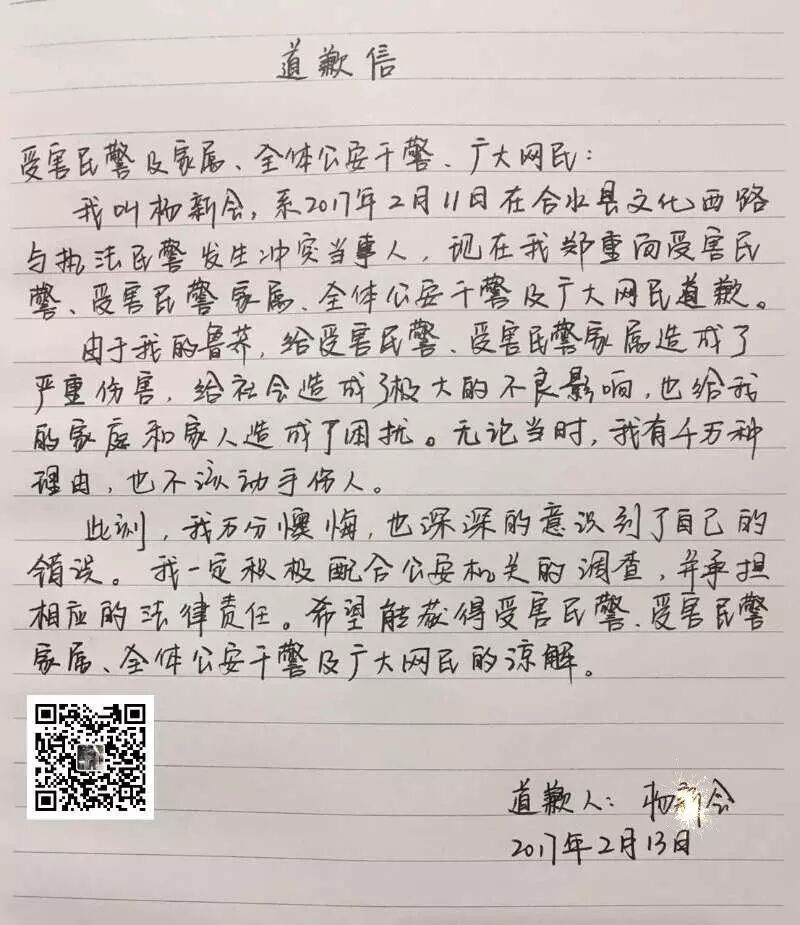 道歉信
受害民警及家属、全体公安干警、广大网民：
我叫杨新会，系2017年2月11日在合水县文化西路
与执法民警发生冲突当事人，现在我郑重向受害民
警、受害民警家属、全体公安干警及广大网民道歉。
由于我的鲁莽，给受害民警、受害民警家属造成了
严重伤害，给社会造成了极大的不良影响，也给我
的家庭和家人造成了困扰。无论当时，我有千万种
理由，也不该动手伤人。
此刻，我万分懊悔，也深深的意识到了自己的
错误。我一定积极配合公安机关的调查，并承担
相应的法律责任。希望能获得受害民警、受害民警
家属、全体公安干警及广大网民的谅解。
道歉人：杨新会
2017年2月13日